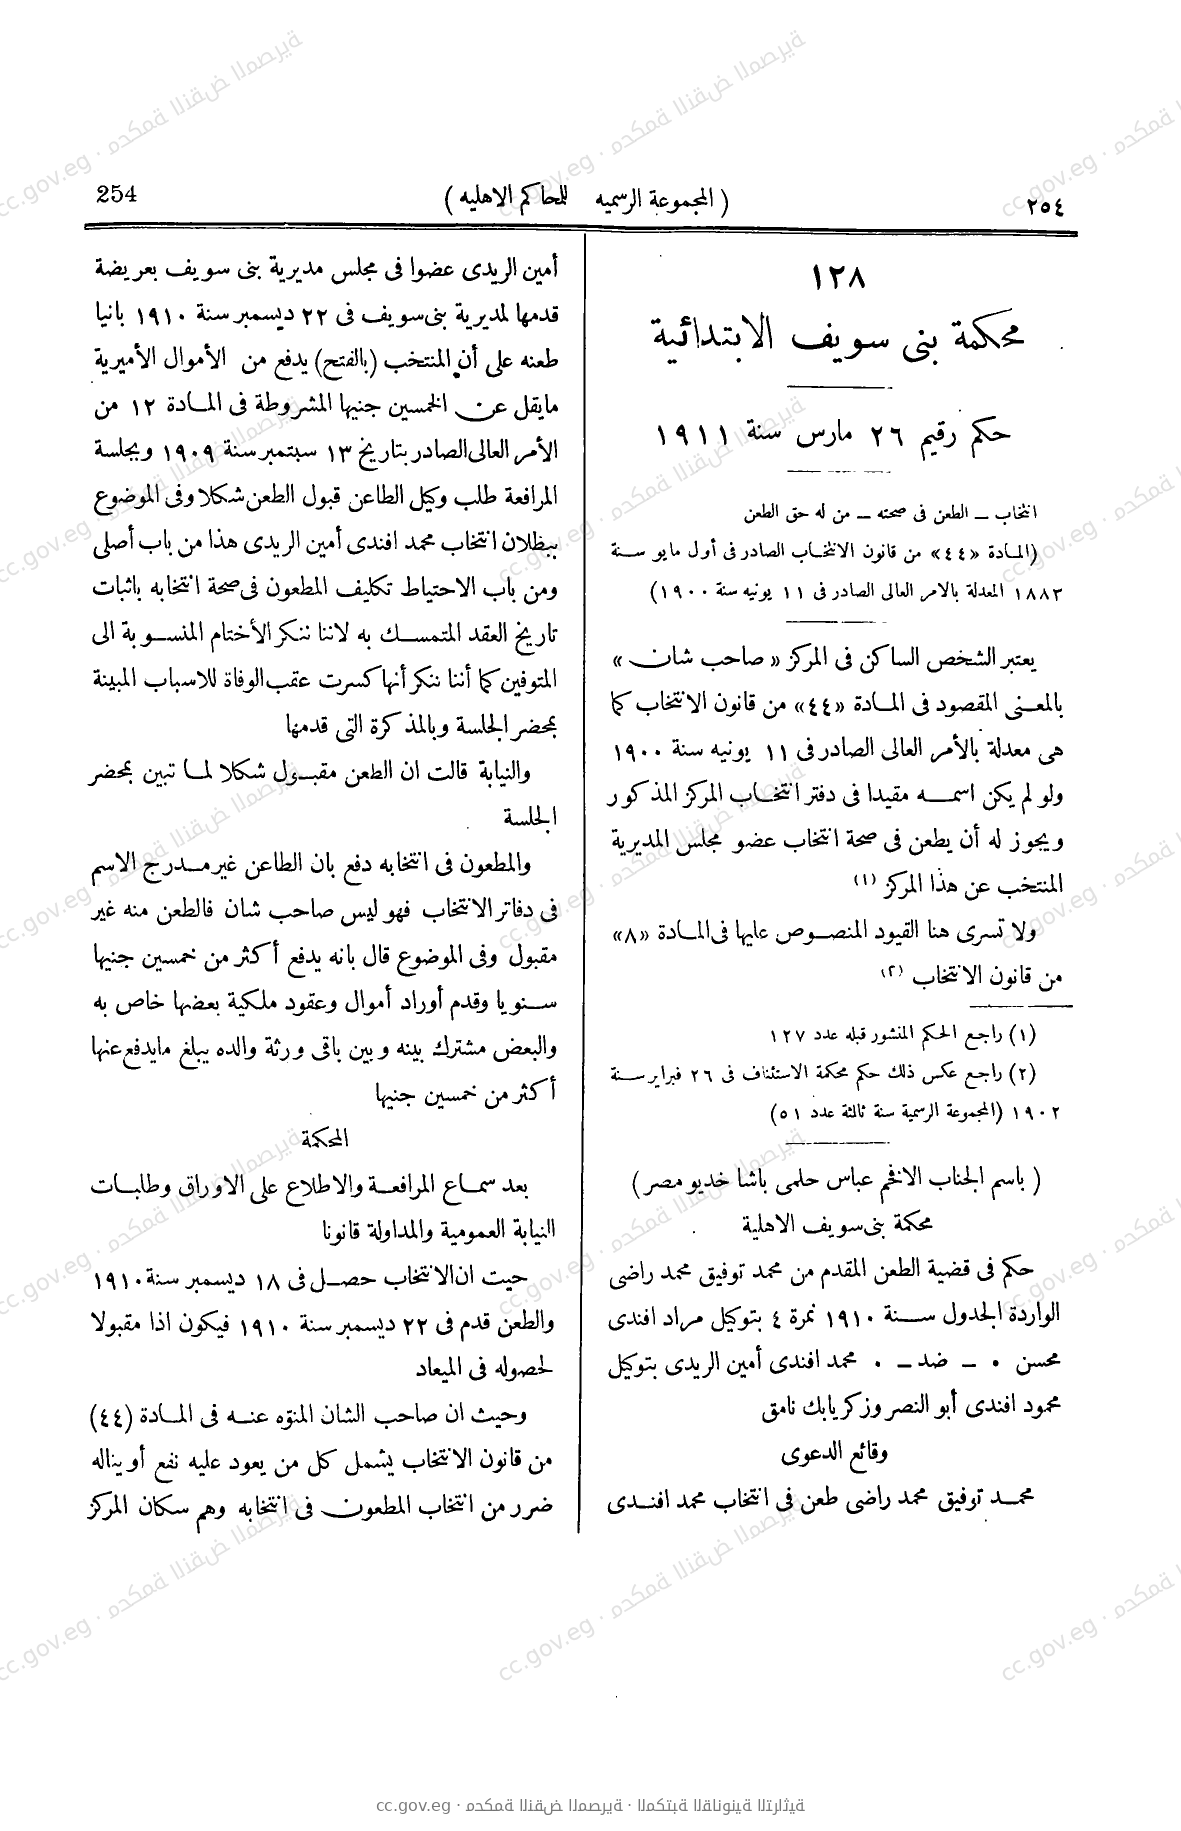 254
( المجموعة الرسميه للمحاكم الاهليه )
٢٥٤
١٢٨
محكمة بنى سويف الابتدائية
حكم رقيم ٢٦ مارس سنة ١٩١١
انتخاب ــ الطعن فى صحته ــ من له حق الطعن
(المادة «٤٤» من قانون الانتخاب الصادر فى أول مايو سنة
١٨٨٣ المعدلة بالامر العالى الصادر فى ١١ يونيه سنة ١٩٠٠)
يعتبر الشخص الساكن فى المركز « صاحب شان »
بالمعنى المقصود فى المادة «٤٤» من قانون الانتخاب كما
هى معدلة بالأمر العالى الصادر فى ١١ يونيه سنة ١٩٠٠
ولو لم يكن اسمه مقيدا فى دفتر انتخاب المركز المذكور
ويجوز له أن يطعن فى صحة انتخاب عضو مجلس المديرية
المنتخب عن هذا المركز (١)
ولا تسرى هنا القيود المنصوص عليها فى المادة «٨»
من قانون الانتخاب (٢)
(١) راجع الحكم المنشور قبله عدد ١٢٧
(٢) راجع عكس ذلك حكم محكمة الاستئناف فى ٢٦ فبراير سنة
١٩٠٢ (المجموعة الرسمية سنة ثالثة عدد ٥١)
( باسم الجناب الافخم عباس حلمى باشا خديو مصر )
محكمة بنى سويف الاهلية
حكم فى قضية الطعن المقدم من محمد توفيق محمد راضى
الواردة الجدول سنة ١٩١٠ نمرة ٤ بتوكيل مراد افندى
محسن . ــ ضد ــ . محمد افندى أمين الريدى بتوكيل
محمود افندى أبو النصر وزكريا بك نامق
وقائع الدعوى
محمد توفيق محمد راضى طعن فى انتخاب محمد افندى
أمين الريدى عضوا فى مجلس مديرية بنى سويف بعريضة
قدمها لمديرية بنى سويف فى ٢٢ ديسمبر سنة ١٩١٠ بانيا
طعنه على أن المنتخب (بالفتح) يدفع من الأموال الأميرية
مايقل عن الخمسين جنيها المشروطة فى المادة ١٢ من
الأمر العالى الصادر بتاريخ ١٣ سبتمبر سنة ١٩٠٩ وبجلسة
المرافعة طلب وكيل الطاعن قبول الطعن شكلا وفى الموضوع
ببطلان انتخاب محمد افندى أمين الريدى هذا من باب أصلى
ومن باب الاحتياط تكليف المطعون فى صحة انتخابه باثبات
تاريخ العقد المتمسك به لاننا ننكر الأختام المنسوبة الى
المتوفين كما أننا ننكر أنها كسرت عقب الوفاة للاسباب المبينة
بمحضر الجلسة وبالمذكرة التى قدمها
والنيابة قالت ان الطعن مقبول شكلا لما تبين بمحضر
الجلسة
والمطعون فى انتخابه دفع بان الطاعن غير مدرج الاسم
فى دفاتر الانتخاب فهو ليس صاحب شان فالطعن منه غير
مقبول وفى الموضوع قال بانه يدفع أكثر من خمسين جنيها
سنويا وقدم أوراد أموال وعقود ملكية بعضها خاص به
والبعض مشترك بينه وبين باقى ورثة والده يبلغ مايدفع عنها
أكثر من خمسين جنيها
المحكمة
بعد سماع المرافعة والاطلاع على الاوراق وطلبات
النيابة العمومية والمداولة قانونا
حيث ان الانتخاب حصل فى ١٨ ديسمبر سنة ١٩١٠
والطعن قدم فى ٢٢ ديسمبر سنة ١٩١٠ فيكون اذا مقبولا
لحصوله فى الميعاد
وحيث ان صاحب الشان المنوّه عنه فى المادة (٤٤)
من قانون الانتخاب يشمل كل من يعود عليه نفع أو يناله
ضرر من انتخاب المطعون فى انتخابه وهم سكان المركز
cc.gov.eg · محكمة النقض المصرية · المكتبة القانونية التراثية